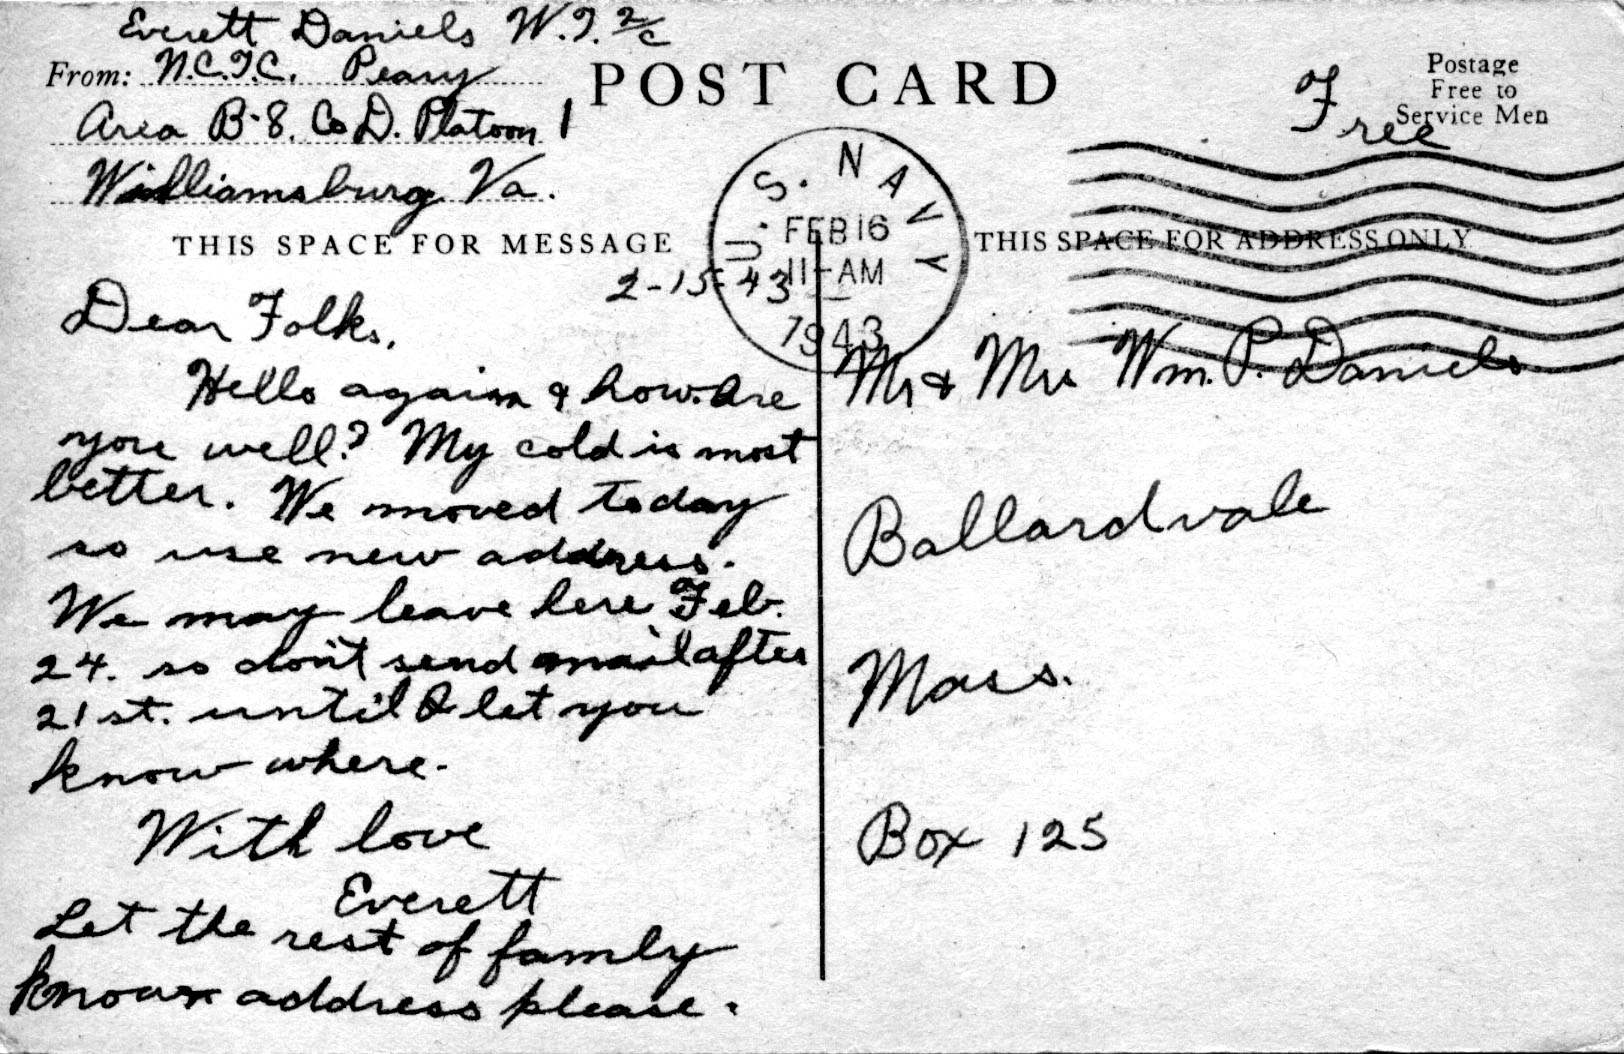 Everett Daniels W.T. 2/c
From: N.C.T.C. Peary
Area B-8. Co D. Platoon 1
Williamsburg Va.
POST CARD
Postage
Free to
Service Men
Free
U. S. NAVY
FEB 16
11-AM
1943
THIS SPACE FOR MESSAGE
THIS SPACE FOR ADDRESS ONLY
2-15-43
Dear Folks,
Hello again & how are
you well? My cold is most
better. We moved today
so use new address.
We may leave here Feb.
24. so don't send mail after
21st. until I let you
know where.
With love
Everett
Let the rest of family
know address please.
Mr & Mrs Wm. P. Daniels
Ballardvale
Mass.
Box 125